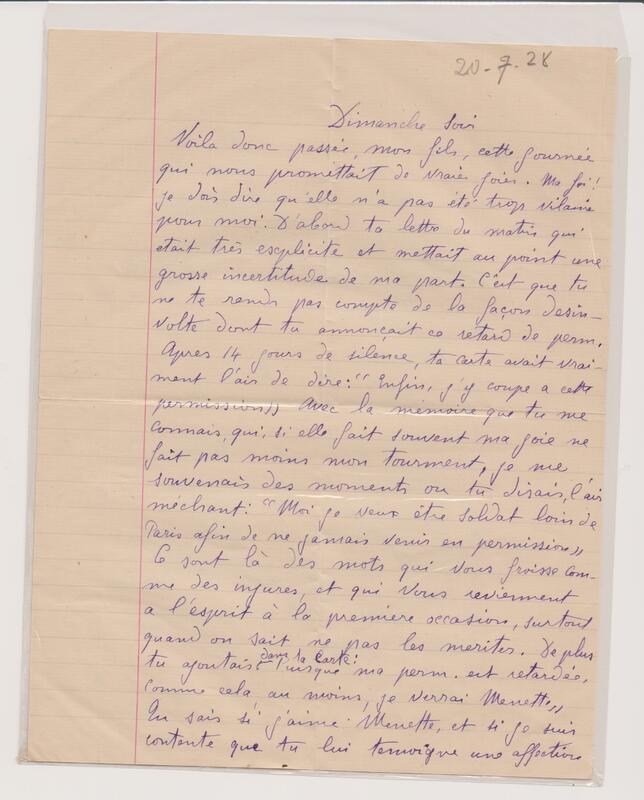 20-7-28
Dimanche soir
Voila donc passée, mon fils, cette journée
qui nous promettait de vraies joies. Ma foi!
je dois dire qu'elle n'a pas été trop vilaine
pour moi. D'abord ta lettre du matin qui
était très explicite et mettait au point une
grosse incertitude de ma part. C'est que tu
ne te rends pas compte de la façon désin-
volte dont tu annonçait ce retard de perm.
Après 14 jours de silence, ta carte avait vrai-
ment l'air de dire: "Enfin, j'y coupe a cette
permission" Avec la mémoire que tu me
connais, qui, si elle fait souvent ma joie ne
fait pas moins mon tourment, je me
souvenais des moments ou tu disais, l'air
méchant: "Moi je veux être soldat loin de
Paris afin de ne jamais venir en permission"
Ce sont là des mots qui vous froisse com-
me des injures, et qui vous reviennent
a l'esprit à la première occasion, surtout
quand on sait ne pas les mérites. De plus
tu ajoutais dans ta carte: "Puisque ma perm. est retardée,
comme cela au moins, je verrai Menette"
Tu sais si j'aime Menette, et si je suis
contente que tu lui temoigne une affection